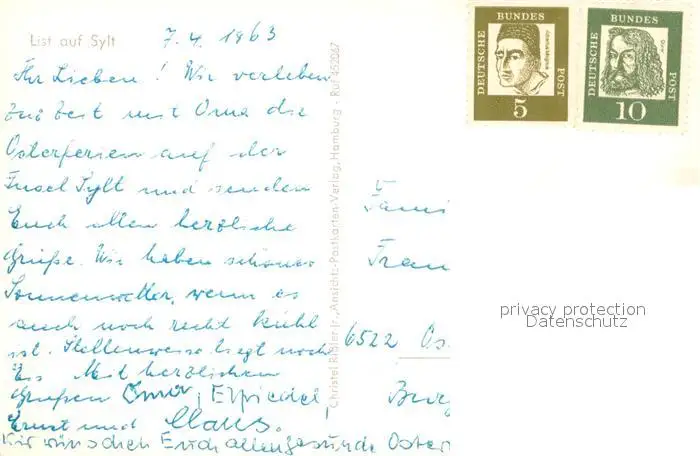 List auf Sylt
7.4.1963
Ihr Lieben! Wir verleben
zur Zeit mit Oma die
Osterferien auf der
Insel Sylt und senden
Euch allen herzliche
Grüße. Wir haben schönes
Sonnenwetter, wenn es
auch noch recht kühl
ist. Stellenweise liegt noch
Eis. Mit herzlichen
Grüßen Omi, 
Ernst und Claus.
Wir wünschen Euch allen gesunde Oster
Christel Rißler jr., Ansichts-Postkarten-Verlag, Hamburg - Ruf 452067
Fami
Frau
6522 Os
Burg
DEUTSCHE BUNDES POST
Albertus Magnus
5
DEUTSCHE BUNDES POST
Dürer
10
privacy protection
Datenschutz